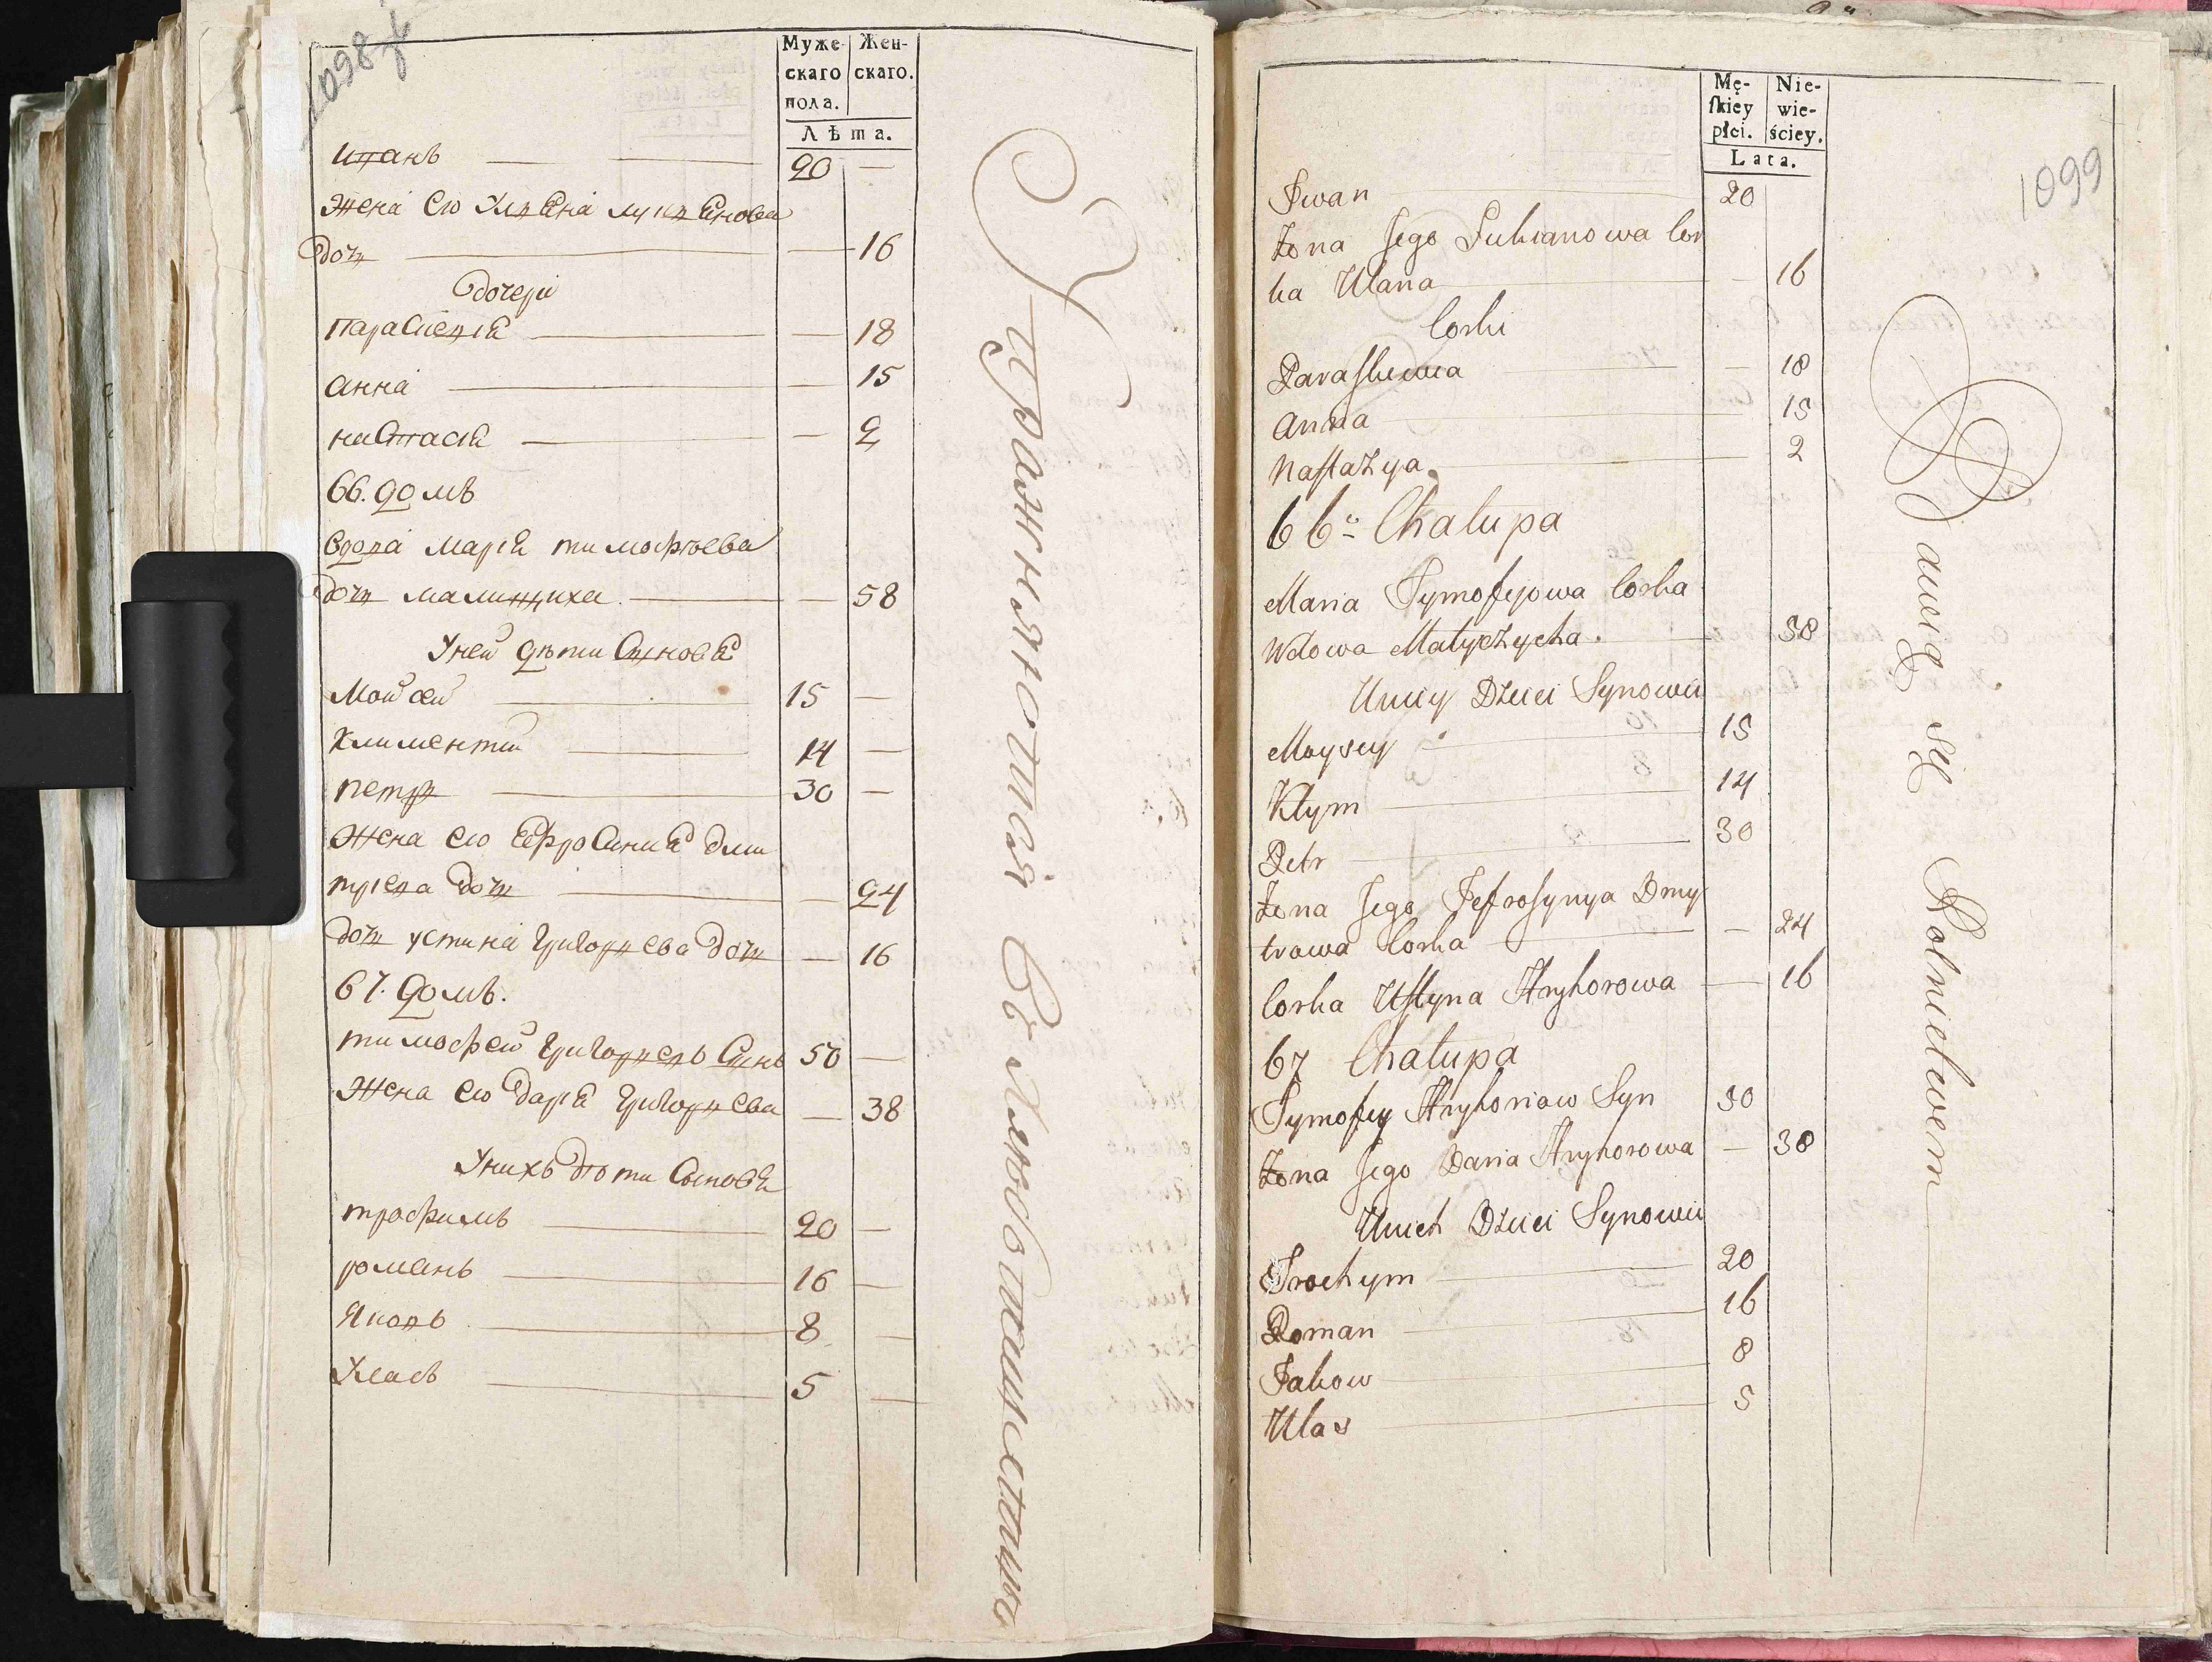 1098
Муже-
скаго
пола.
Жен-
скаго.
Лѣта.
Иванъ 20 —
Жена Его Улияна лукиянова
дочь — 16
Дочери
Параскевия — 18
Анна — 15
Настасия — 2
66. Домъ
Вдова Мария тимофѣева
дочь — 58
У ней дѣти Сыновья
Мойсей 15 —
Климентий 14 —
петръ 30 —
Жена Его Ефросиния Дми
триева дочь — 24
дочь устина Григориева дочь — 16
67. Домъ.
тимофей Григориевъ Сынъ 50 —
Жена Его дария Григориева — 38
У нихъ дѣти Сыновья
трофимъ 20 —
романъ 16 —
Яковъ 8 —
Уласъ 5 —
Упражняются въ хлебопашестве
1099
Mę-
skiey
płci.
Nie-
wie-
ściey.
Lata.
Iwan 20
Żona Jego Lukianowa Cor
ka Ulana — 16
Corki
Paraskewia — 18
Anna 15
Nastazya 2
66a Chalupa
Maria Tymofejowa Corka
Wdowa Malyczycha. 58
Uniey Dzieci Synowie
Moysey 15
Klym 14
Petr 30
Żona Jego Jefrosynya Dmy
trowa Corka — 24
Corka Ustyna Hryhorowa — 16
67 Chalupa
Tymofey Hryhoriow Syn 50
Żona Jego Daria Hryhorowa — 38
Unich Dzieci Synowie
Trochym 20
Roman 16
Jakow 8
Ulas 5
Bawią się Rolnictwem